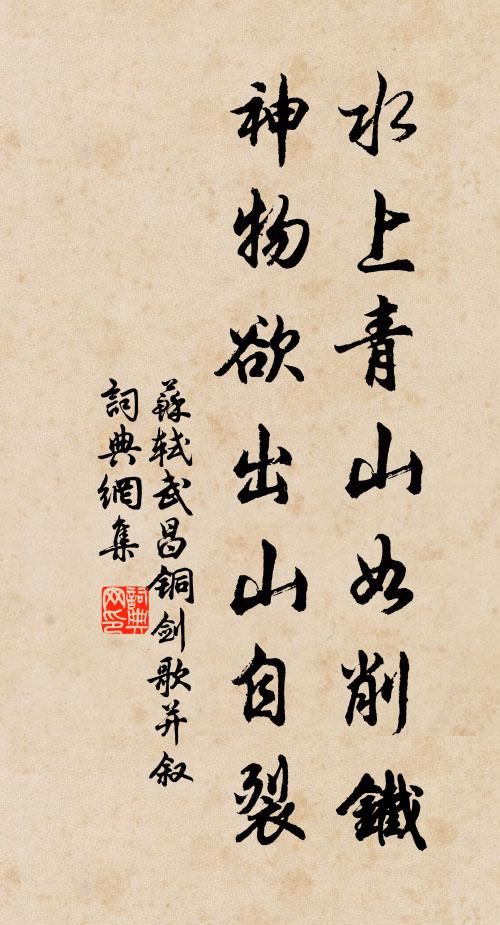 水上青山如削鐵
神物欲出山自裂
蘇軾武昌銅劍歌并叙
詞典網集
詞典网印